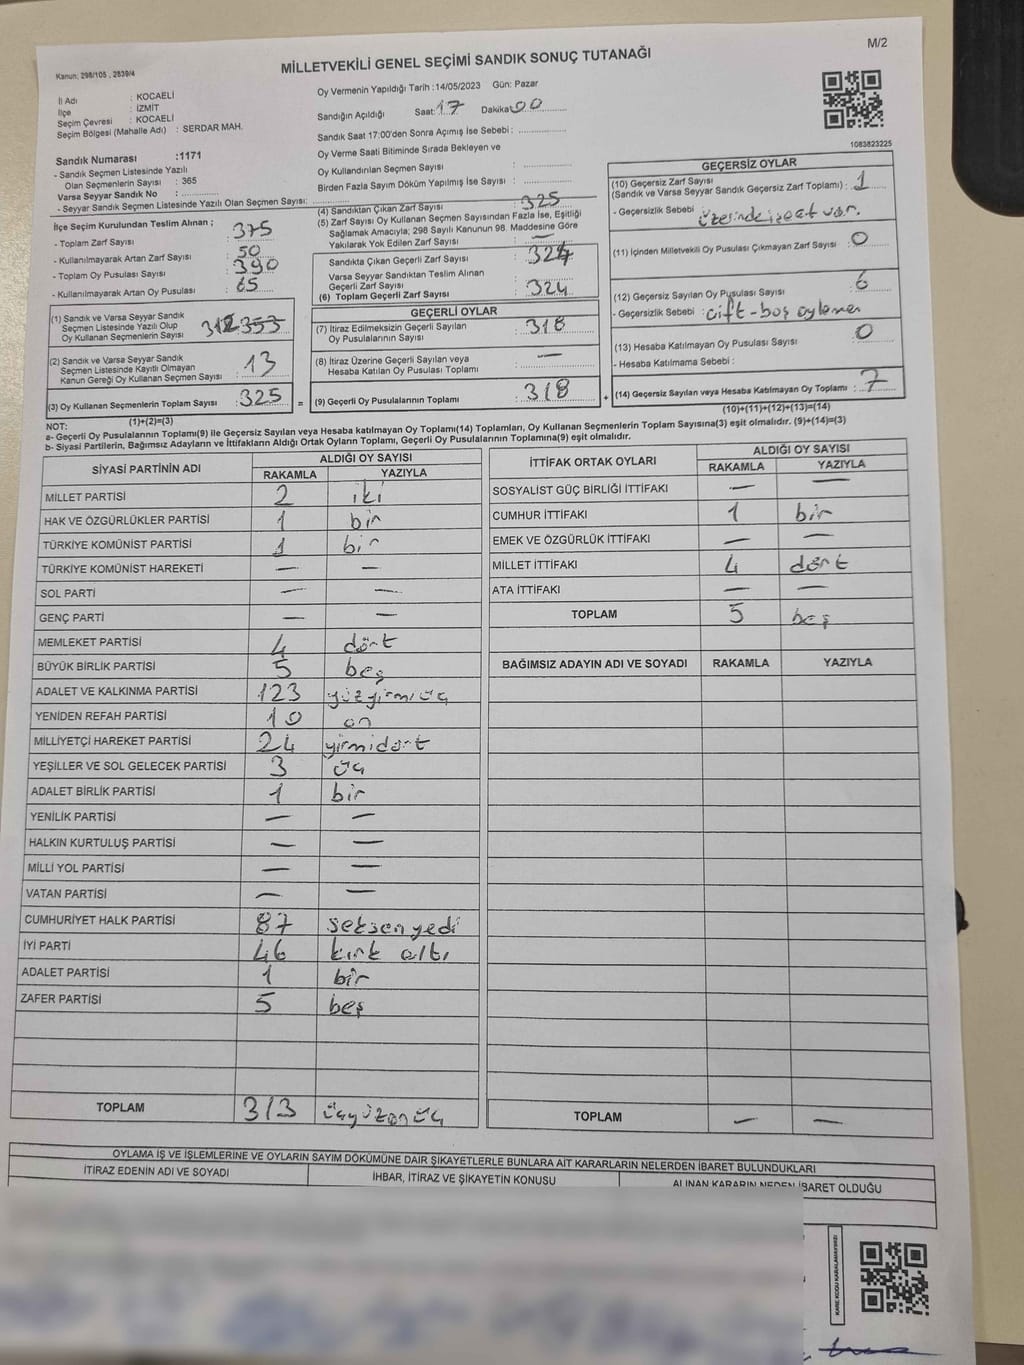 M/2
MİLLETVEKİLİ GENEL SEÇİMİ SANDIK SONUÇ TUTANAĞI
Kanun: 298/105 , 2839/4
İl Adı : KOCAELİ
İlçe : İZMİT
Seçim Çevresi : KOCAELİ
Seçim Bölgesi (Mahalle Adı) : SERDAR MAH.
Sandık Numarası :1171
- Sandık Seçmen Listesinde Yazılı
Olan Seçmenlerin Sayısı : 365
Varsa Seyyar Sandık No :
- Seyyar Sandık Seçmen Listesinde Yazılı Olan Seçmen Sayısı:
Oy Vermenin Yapıldığı Tarih :14/05/2023 Gün: Pazar
Sandığın Açıldığı Saat: 17 Dakika: 00
Sandık Saat 17:00'den Sonra Açımış İse Sebebi :
Oy Verme Saati Bitiminde Sırada Bekleyen ve
Oy Kullandırılan Seçmen Sayısı :
Birden Fazla Sayım Döküm Yapılmış İse Sayısı :
1083823225
İlçe Seçim Kurulundan Teslim Alınan ;
- Toplam Zarf Sayısı : 375
- Kullanılmayarak Artan Zarf Sayısı : 50
- Toplam Oy Pusulası Sayısı : 390
- Kullanılmayarak Artan Oy Pusulası : 65
(1) Sandık ve Varsa Seyyar Sandık
Seçmen Listesinde Yazılı Olup
Oy Kullanan Seçmenlerin Sayısı : 312 353
(2) Sandık ve Varsa Seyyar Sandık
Seçmen Listesinde Kayıtlı Olmayan
Kanun Gereği Oy Kullanan Seçmen Sayısı : 13
(3) Oy Kullanan Seçmenlerin Toplam Sayısı : 325
(1)+(2)=(3)
(4) Sandıktan Çıkan Zarf Sayısı : 325
(5) Zarf Sayısı Oy Kullanan Seçmen Sayısından Fazla İse, Eşitliği
Sağlamak Amacıyla; 298 Sayılı Kanunun 98. Maddesine Göre
Yakılarak Yok Edilen Zarf Sayısı : —
Sandıkta Çıkan Geçerli Zarf Sayısı : 324
Varsa Seyyar Sandıktan Teslim Alınan
Geçerli Zarf Sayısı :
(6) Toplam Geçerli Zarf Sayısı : 324
GEÇERLİ OYLAR
(7) İtiraz Edilmeksizin Geçerli Sayılan
Oy Pusulalarının Sayısı : 318
(8) İtiraz Üzerine Geçerli Sayılan veya
Hesaba Katılan Oy Pusulası Toplamı : —
= (9) Geçerli Oy Pusulalarının Toplamı : 318 +
GEÇERSİZ OYLAR
(10) Geçersiz Zarf Sayısı
(Sandık ve Varsa Seyyar Sandık Geçersiz Zarf Toplamı) : 1
- Geçersizlik Sebebi : üzerinde işaret var.
(11) İçinden Milletvekili Oy Pusulası Çıkmayan Zarf Sayısı : 0
(12) Geçersiz Sayılan Oy Pusulası Sayısı : 6
- Geçersizlik Sebebi : çift-boş oylama
(13) Hesaba Katılmayan Oy Pusulası Sayısı : 0
- Hesaba Katılmama Sebebi :
(14) Geçersiz Sayılan veya Hesaba Katılmayan Oy Toplamı : 7
(10)+(11)+(12)+(13)=(14)
NOT:
a- Geçerli Oy Pusulalarının Toplamı(9) ile Geçersiz Sayılan veya Hesaba katılmayan Oy Toplamı(14) Toplamları, Oy Kullanan Seçmenlerin Toplam Sayısına(3) eşit olmalıdır. (9)+(14)=(3)
b- Siyasi Partilerin, Bağımsız Adayların ve İttifakların Aldığı Ortak Oyların Toplamı, Geçerli Oy Pusulalarının Toplamına(9) eşit olmalıdır.
SİYASİ PARTİNİN ADI ALDIĞI OY SAYISI
RAKAMLA YAZIYLA
MİLLET PARTİSİ 2 iki
HAK VE ÖZGÜRLÜKLER PARTİSİ 1 bir
TÜRKİYE KOMÜNİST PARTİSİ 1 bir
TÜRKİYE KOMÜNİST HAREKETİ — —
SOL PARTİ — —
GENÇ PARTİ — —
MEMLEKET PARTİSİ 4 dört
BÜYÜK BİRLİK PARTİSİ 5 beş
ADALET VE KALKINMA PARTİSİ 123 yüzyirmiüç
YENİDEN REFAH PARTİSİ 10 on
MİLLİYETÇİ HAREKET PARTİSİ 24 yirmidört
YEŞİLLER VE SOL GELECEK PARTİSİ 3 üç
ADALET BİRLİK PARTİSİ 1 bir
YENİLİK PARTİSİ — —
HALKIN KURTULUŞ PARTİSİ — —
MİLLİ YOL PARTİSİ — —
VATAN PARTİSİ — —
CUMHURİYET HALK PARTİSİ 87 seksenyedi
İYİ PARTİ 46 kırk altı
ADALET PARTİSİ 1 bir
ZAFER PARTİSİ 5 beş
TOPLAM 313 üçyüzonüç
İTTİFAK ORTAK OYLARI ALDIĞI OY SAYISI
RAKAMLA YAZIYLA
SOSYALİST GÜÇ BİRLİĞİ İTTİFAKI — —
CUMHUR İTTİFAKI 1 bir
EMEK VE ÖZGÜRLÜK İTTİFAKI — —
MİLLET İTTİFAKI 4 dört
ATA İTTİFAKI — —
TOPLAM 5 beş
BAĞIMSIZ ADAYIN ADI VE SOYADI RAKAMLA YAZIYLA
TOPLAM — —
OYLAMA İŞ VE İŞLEMLERİNE VE OYLARIN SAYIM DÖKÜMÜNE DAİR ŞİKAYETLERLE BUNLARA AİT KARARLARIN NELERDEN İBARET BULUNDUKLARI
İTİRAZ EDENİN ADI VE SOYADI İHBAR, İTİRAZ VE ŞİKAYETİN KONUSU ALINAN KARARIN NEDEN İBARET OLDUĞU
KARE KODU KARALAMAYINIZ!